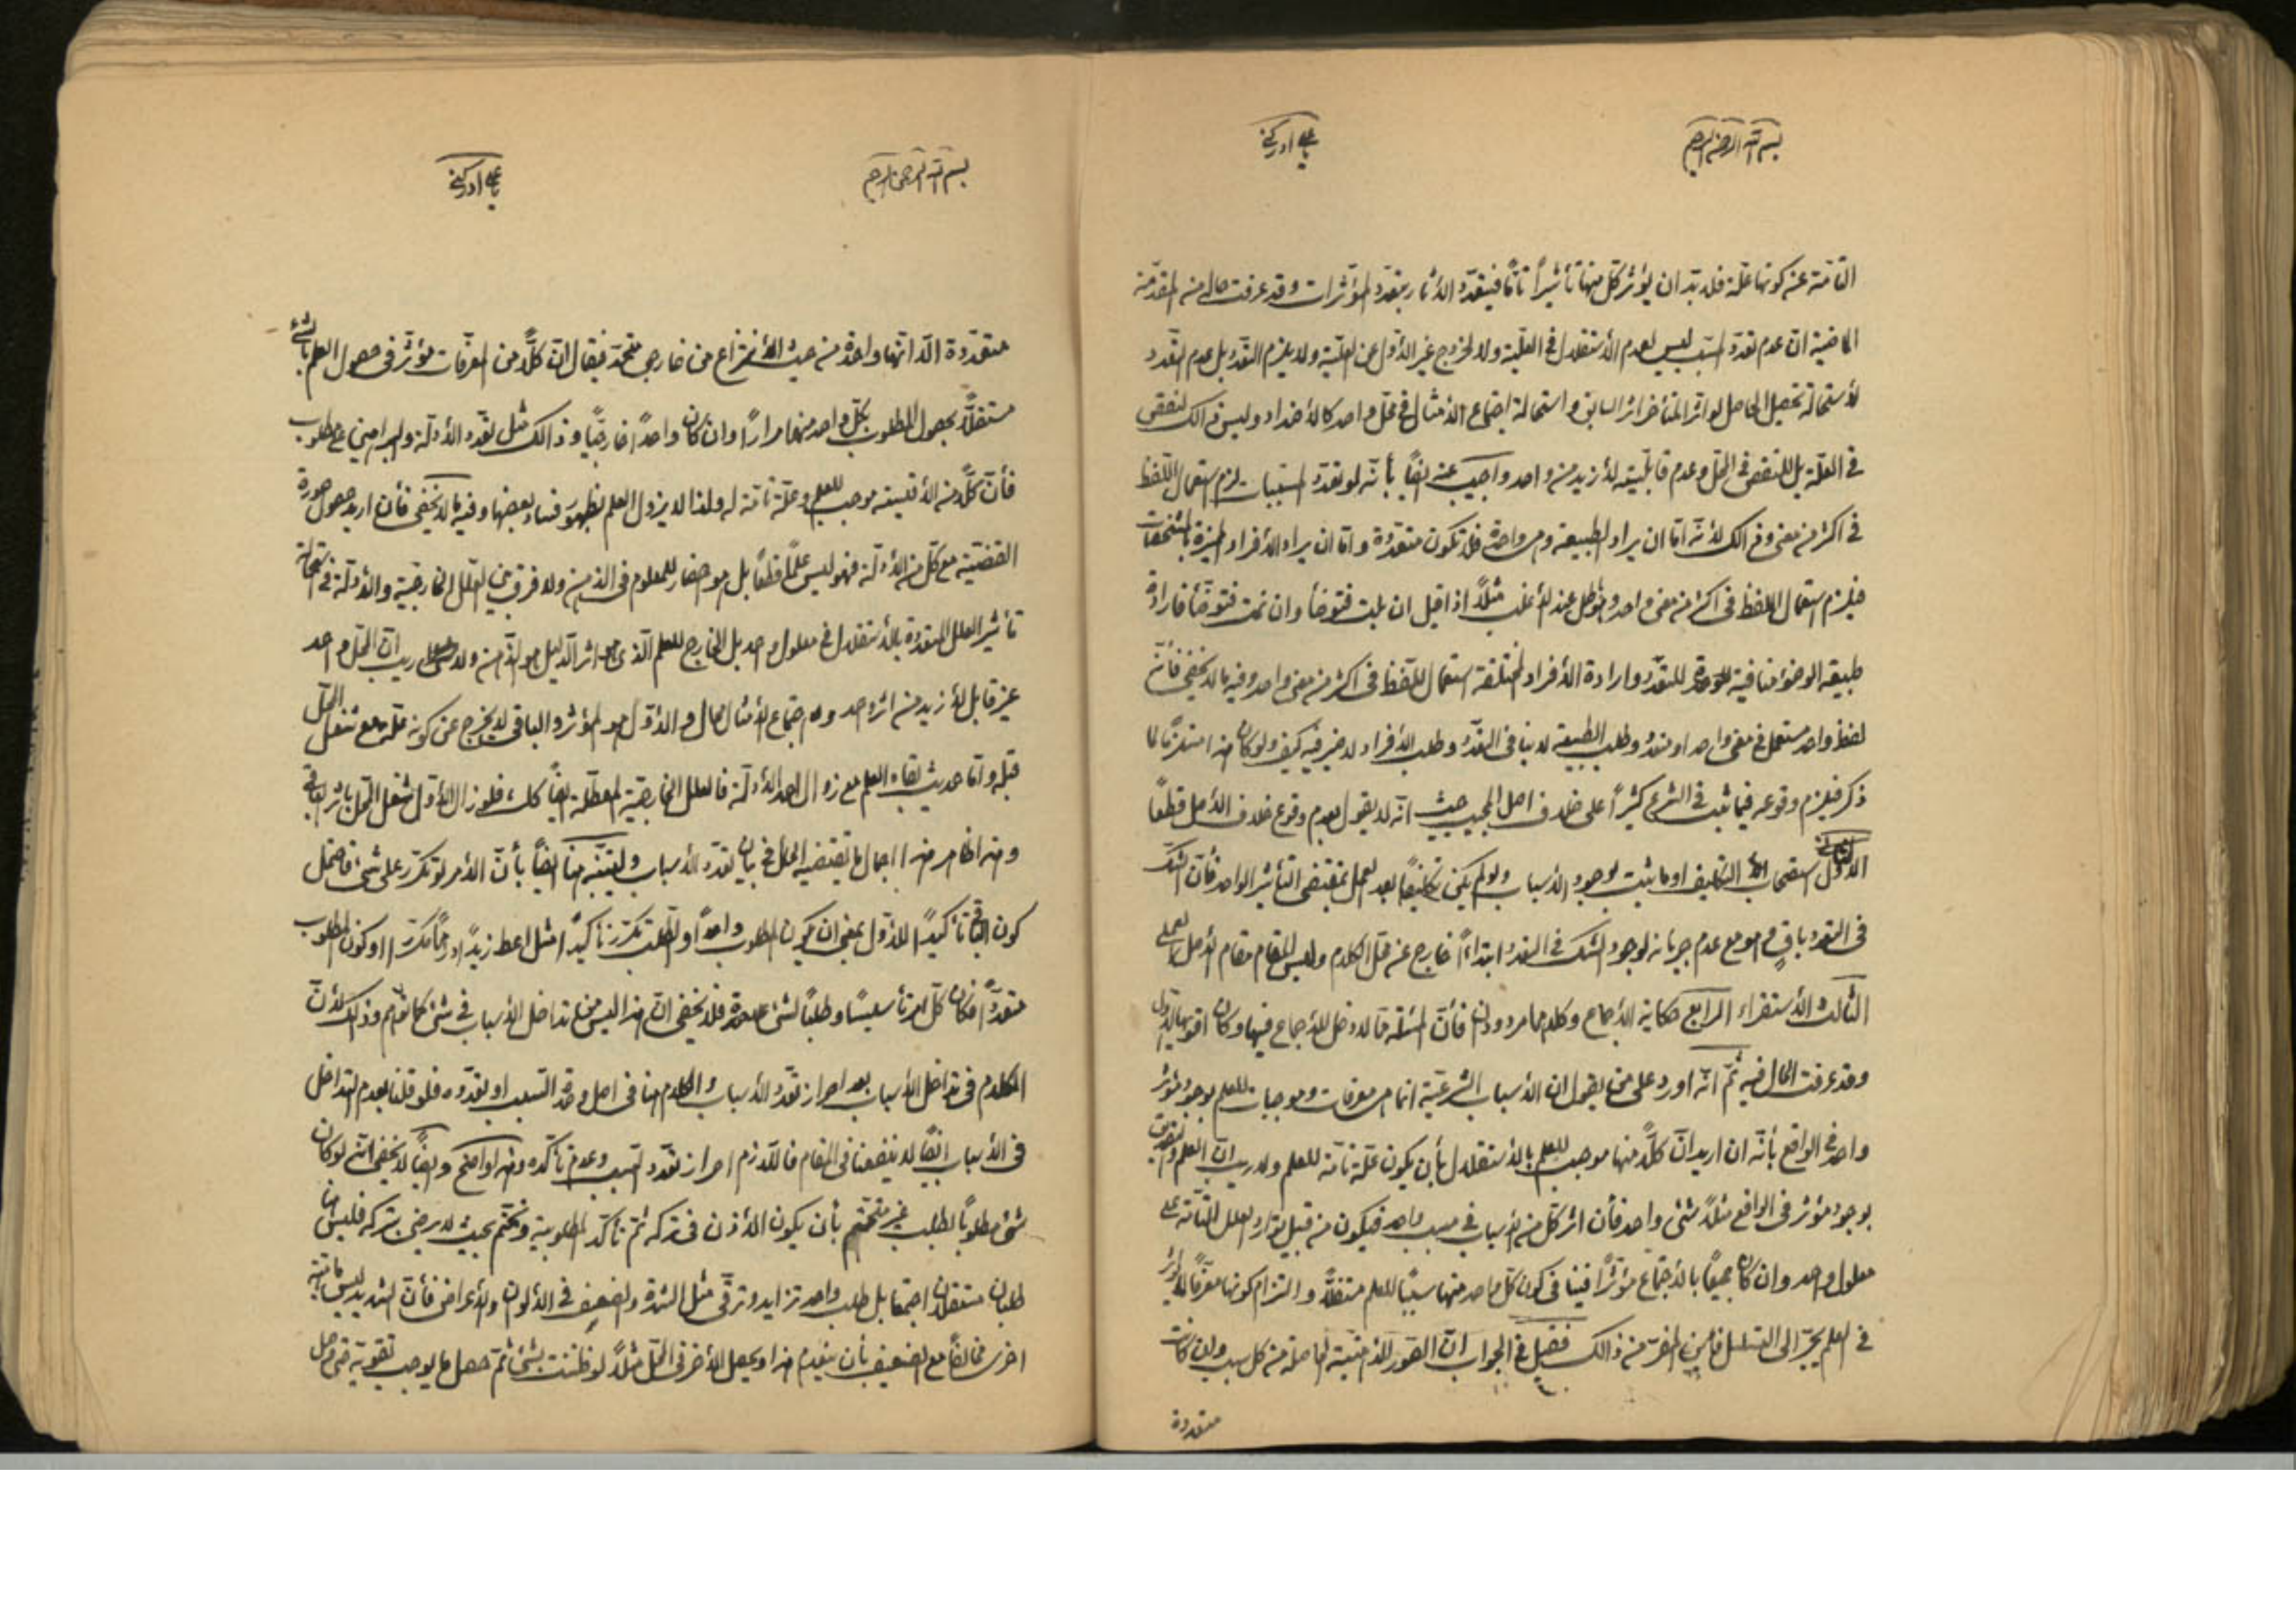 بسم الله الرحمن الرحيم
يا علي ادركني
التامة عن كونها علة فلا بد ان يؤثر كل منها تأثيراً تاماً فيتعدد الأثار بتعدد المؤثرات وقد عرفت حاله من المقدمة
الماضية ان عدم تعدد المسبب ليس لعدم الأستقلال في العلية ولا لخروج غير الأول عن العلية ولا يلزم التعدد بل عدم التعدد
لأستحالة تحصيل الحاصل لو اثر المتأخر اثر السابق و استحالة اجتماع الأمثال في محل واحد كالأضداد وليس ذالك لنقص
في العلة بل للنقص في المحل وعدم قابليته لأزيد من واحد واجيب عنه ايضاً بأنه لو تعدد المسببات لزم استعمال اللفظ
في اكثر من معنى وذالك لأنه اما ان يراد الطبيعة وهي واحدة فلا تكون متعددة و اما ان يراد الأفراد المميزة بالمشخصات
فيلزم استعمال اللفظ في اكثر من معنى واحد وهو باطل عند الأغلب مثلاً اذا قيل ان بلت فتوضأ وان نمت فتوضأ فارادة
طبيعة الوضوء منافية للتعدد وارادة الأفراد المختلفة استعمال للفظ في اكثر من معنى واحد وفيه ما لا يخفى فأن
لفظ واحد مستعمل في معنى واحد او متعدد وطلب الطبيعة لا ينافي التعدد وطلب الأفراد لا ضير فيه كيف ولو كان هذا مستلزماً لما
ذكر فيلزم وقوعه فيما ثبت في الشرع كثيراً على خلاف اصل المجيب حيث انه لا يقول بعدم وقوع خلاف الأصل قطعاً
الثاني استصحاب التكليف او ما يثبت بوجود الأسباب ولو لم يكن تكليفاً بعد العمل بمقتضى التأثير الواحد فأن الشك
في التعدد باق وهو مع عدم جريانه لوجود الشك في التعدد ابتداءً خارج عن محل الكلام وليس المقام مقام الأصل العملي
الثالث الأستقراء الرابع حكاية الأجماع وكلاهما مردودان فأن المسئلة مما لا دخل للأجماع فيها وكان اقويها الأول
وقد عرفت الحال فيه ثم انه اورد على من يقول ان الأسباب الشرعية انما هي معرفات وموجبات للعلم بوجود مؤثر
واحد في الواقع بأنه ان اريد ان كلاً منها موجب للعلم بالأستقلال بأن يكون علة تامة للعلم ولا ريب ان العلم
بوجود مؤثر في الواقع مثلاً شئ واحد فأن اثر كل من الأسباب في مسبب واحد فيكون من قبيل توارد العلل التامة على
معلول واحد وان كان جميعاً بالأجتماع مؤثراً فينافي كون كل واحد منها سبباً للعلم مستقلاً و التزام كونها معرفاً
في العلم يجر الى التسلسل فأين المفر من ذالك فقيل في الجواب ان الصور الذهنية الحاصلة من كل سبب وان كانت
متعددة
بسم الله الرحمن الرحيم
يا علي ادركني
متعددة الا انها واحدة من حيث الأنتزاع من خارجي متحد فيقال ان كلاً من المعرفات مؤثر في حصول العلم بالشئ
مستقلاً بحصول المطلوب بكل واحد منها مراراً وان كان واحداً خارجياً وذالك مثل تعدد الأدلة والبراهين على مطلوب
فأن كلاً من الأقيسة موجب للعلم وعلة تامة له ولذا لا يزول العلم بظهور فساد بعضها وفيه ما لا يخفى فأن اريد حصول صورة
القضية مع كل من الأدلة فهو ليس علماً قطعاً بل هو احضار للمعلوم في الذهن ولا فرق بين العلل الخارجية والأدلة في استحالة
تأثير العلل المتعددة بالأستقلال في معلول واحد بل الخارج للعلم الذي هو اثر الدليل هو الذهن ولا ريب ان المحل واحد
غير قابل لأزيد من اثر واحد و اجتماع الأمثال محال والأول هو المؤثر والباقي لا يخرج عن كونه علة مع شغل المحل
قبله واما حديث بقاء العلم مع زوال احد الأدلة فالعلل الخارجية المعطلة ايضاً كك فلو زال الأول شغل المحل بأثر الباقي
وهذا ظاهر هذا اجمال ما يقتضيه المحل في بيان تعدد الأسباب وليتنبه هنا ايضاً بأن الأمر لو تكرر على شئ فاحتمل
كون الثاني تأكيداً للأول بمعنى ان يكون المطلوب واحداً والطلب تكرر تأكيداً مثل اعط زيداً درهماً مكرراً او كون المطلوب
متعدداً فكان كل امر تأسيساً وطلباً لشئ علىحدة فلا يخفى ان هذا ليس من تداخل الأسباب في شئ كما توهم وذالك لأن
الكلام في تداخل الأسباب بعد احراز تعدد الأسباب والكلام هنا في اصل وحدة السبب او تعدده فلو قلنا بعدم التداخل
في الأسباب ايضاً لا ينفعنا في المقام فاللازم احراز تعدد السبب وعدم تأكده وهذا واضح وايضاً لا يخفى انه لو كان
شئ مطلوباً بطلب غير متحتم بأن يكون الأذن في تركه ثم تأكد المطلوبية وتحتم بحيث لا يرضى بتركه فليس هنا
طلبان مستقلان اجتمعا بل طلب واحد تزايد وترقى مثل الشدة والضعف في الألوان والأعراض فأن الشديد ليس ماهية
اخرى مخالفاً مع الضعيف بأن ينعدم هذا ويحصل الأخر في المحل مثلاً لو ظننت بشئ ثم حصل ما يوجب تقويته حتى وصل